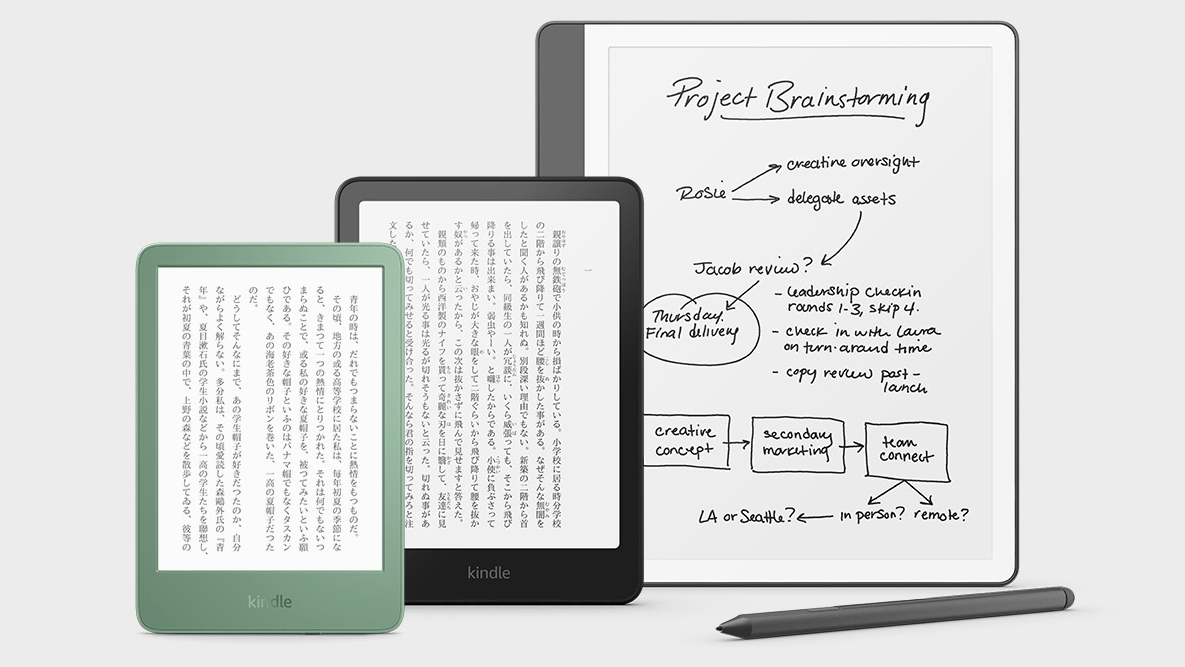 青年の時は、だれでもつまらないことに熱情をもつものだ。
その頃、地方の或る高等学校に居た私は、毎年初夏の季節にな
ると、きまつて一つの熱情にとりつかれた。それは何でもないつ
まらぬことで、或る私の好きな夏帽子を、被つてみたいといふ願
ひである。その好きな帽子といふのはパナマ帽でもなくタスカン
でもなく、あの海老茶色のリボンを巻いた、一高の夏帽子だつた
のだ。
どうしてそんなにまで、あの学生帽子が好きだつたのか、自分
ながらよく解らない。多分私は、その頃愛読した森鷗外氏の『青
年』や、夏目漱石氏の学生小説などから一高の学生たちを聯想し、
それが初夏の青葉の中で、上野の森などを散歩してゐる、彼等の
kindle
一
親譲りの無鉄砲で小供の時から損ばかりしている。小学校に居る時分学校
の二階から飛び降りて一週間ほど腰を抜かした事がある。なぜそんな無闇を
したと聞く人があるかも知れぬ。別段深い理由でもない。新築の二階から首
を出していたら、同級生の一人が冗談に、いくら威張っても、そこから飛び
降りる事は出来まい。弱虫やーい。と囃したからである。小使に負ぶさって
帰って来た時、おやじが大きな眼をして二階ぐらいから飛び降りて腰を抜か
す奴があるかと云ったから、この次は抜かさずに飛んで見せますと答えた。
親類のものから西洋製のナイフを貰って奇麗な刃を日に翳して、友達に見
せていたら、一人が光る事は光るが切れそうもないと云った。切れぬ事があ
るか、何でも切ってみせると受け合った。そんなら君の指を切ってみろと注
文した
kindle
Project Brainstorming
Rosie
creative oversight
delegate assets
Jacob review?
Thursday
Final delivery
- leadership checkin
rounds 1-3, skip 4.
- check in with Laura
on turn-around time
- copy review post-
launch
creative
concept
secondary
marketing
team
connect
LA or Seattle?
in person?
remote?